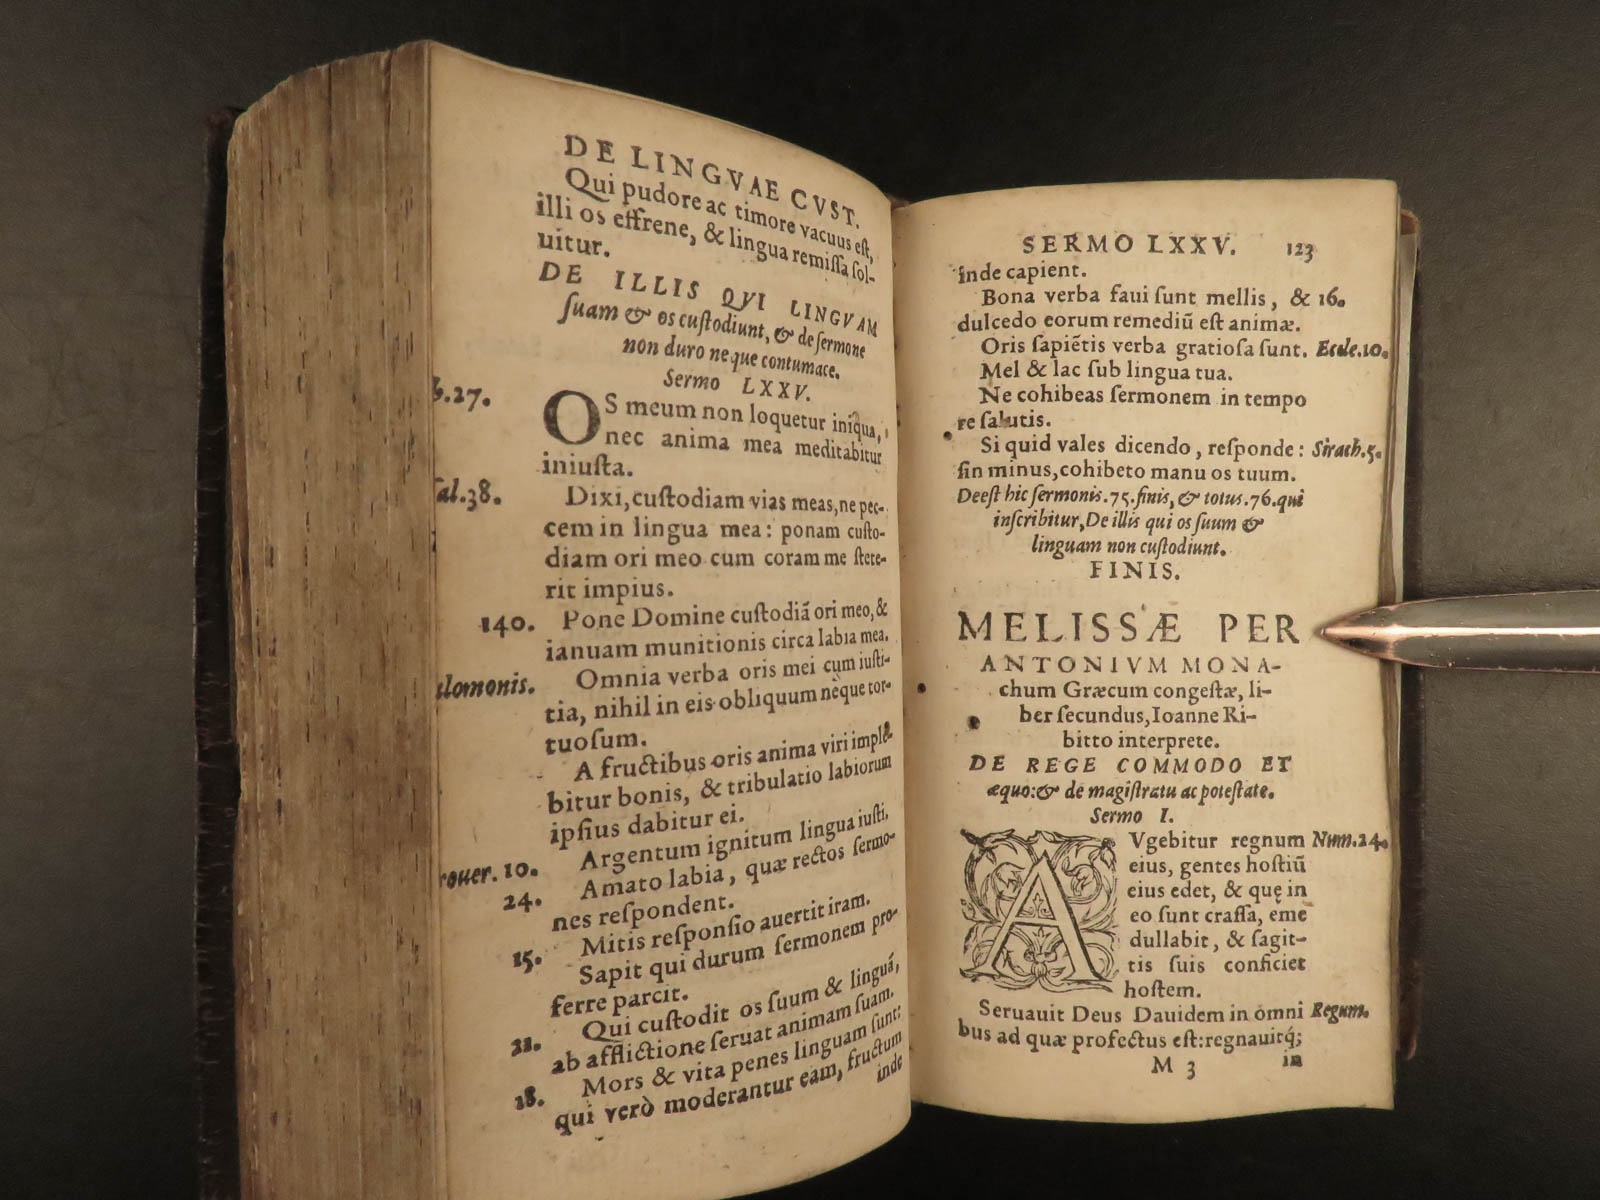 DE LINGVAE CVST.
Qui pudore ac timore vacuus eſt,
illi os effrene, & lingua remiſſa ſol-
uitur.
DE ILLIS QVI LINGVAM
ſuam & os cuſtodiunt, & de ſermone
non duro neque contumace.
Sermo LXXV.
.27. OS meum non loquetur iniqua,
nec anima mea meditabitur
iniuſta.
ſal.38. Dixi, cuſtodiam vias meas, ne pec-
cem in lingua mea: ponam cuſto-
diam ori meo cum coram me ſtete-
rit impius.
140. Pone Domine cuſtodiã ori meo, &
ianuam munitionis circa labia mea.
alomonis. Omnia verba oris mei cum iuſti-
tia, nihil in eis obliquum neque tor-
tuoſum.
A fructibus oris anima viri imple-
bitur bonis, & tribulatio labiorum
ipſius dabitur ei.
rouer.10. Argentum ignitum lingua iuſti.
24. Amato labia, quæ rectos ſermo-
nes reſpondent.
15. Mitis reſponſio auertit iram.
Sapit qui durum ſermonem pro-
ferre parcit.
21. Qui cuſtodit os ſuum & linguã,
ab afflictione ſeruat animam ſuam.
18. Mors & vita penes linguam ſunt:
qui verò moderantur eam, fructum
inde
SERMO LXXV. 123
inde capient.
Bona verba faui ſunt mellis, & 16.
dulcedo eorum remediũ eſt animæ.
Oris ſapiẽtis verba gratioſa ſunt. Eccle.10.
Mel & lac ſub lingua tua.
Ne cohibeas ſermonem in tempo
re ſalutis.
Si quid vales dicendo, reſponde: Sirach.5.
ſin minus, cohibeto manu os tuum.
Deeſt hic ſermonis.75.finis, & totus.76.qui
inſcribitur, De illis qui os ſuum &
linguam non cuſtodiunt.
FINIS.
MELISSÆ PER
ANTONIVM MONA-
chum Græcum congeſtæ, li-
ber ſecundus, Ioanne Ri-
bitto interprete.
DE REGE COMMODO ET
æquo: & de magiſtratu ac poteſtate.
Sermo I.
AVgebitur regnum Num.24.
eius, gentes hoſtiũ
eius edet, & quę in
eo ſunt craſſa, eme
dullabit, & ſagit-
tis ſuis conficiet
hoſtem.
Seruauit Deus Dauidem in omni Regum.
bus ad quæ profectus eſt: regnauitq́;
M 3 in